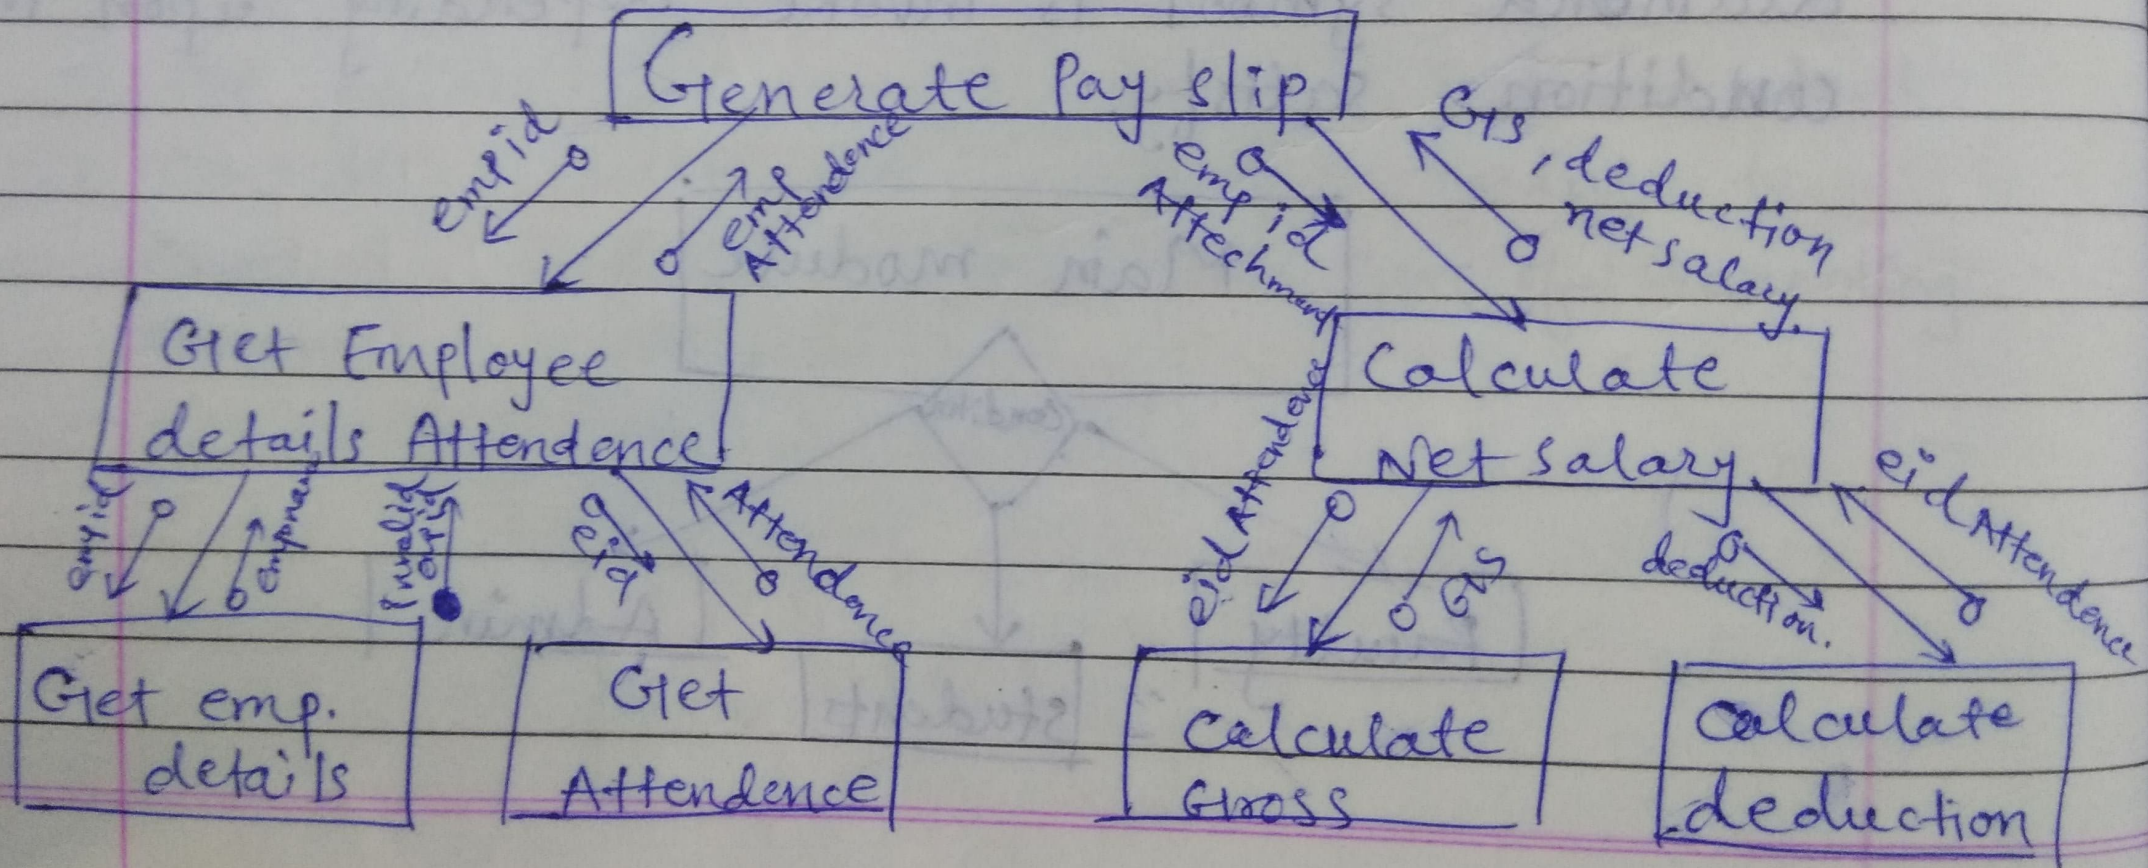 Generate Pay slip
empid
emp
Attendence
emp id
Attechment
GS, deduction
net salary.
Get Employee
details Attendence
Calculate
Net salary
empid
empnam
Invalid
eid
Attendence
eid Attendence
GS
deduction.
eid Attendence
Get emp.
details
Get
Attendence
Calculate
Gross
Calculate
deduction